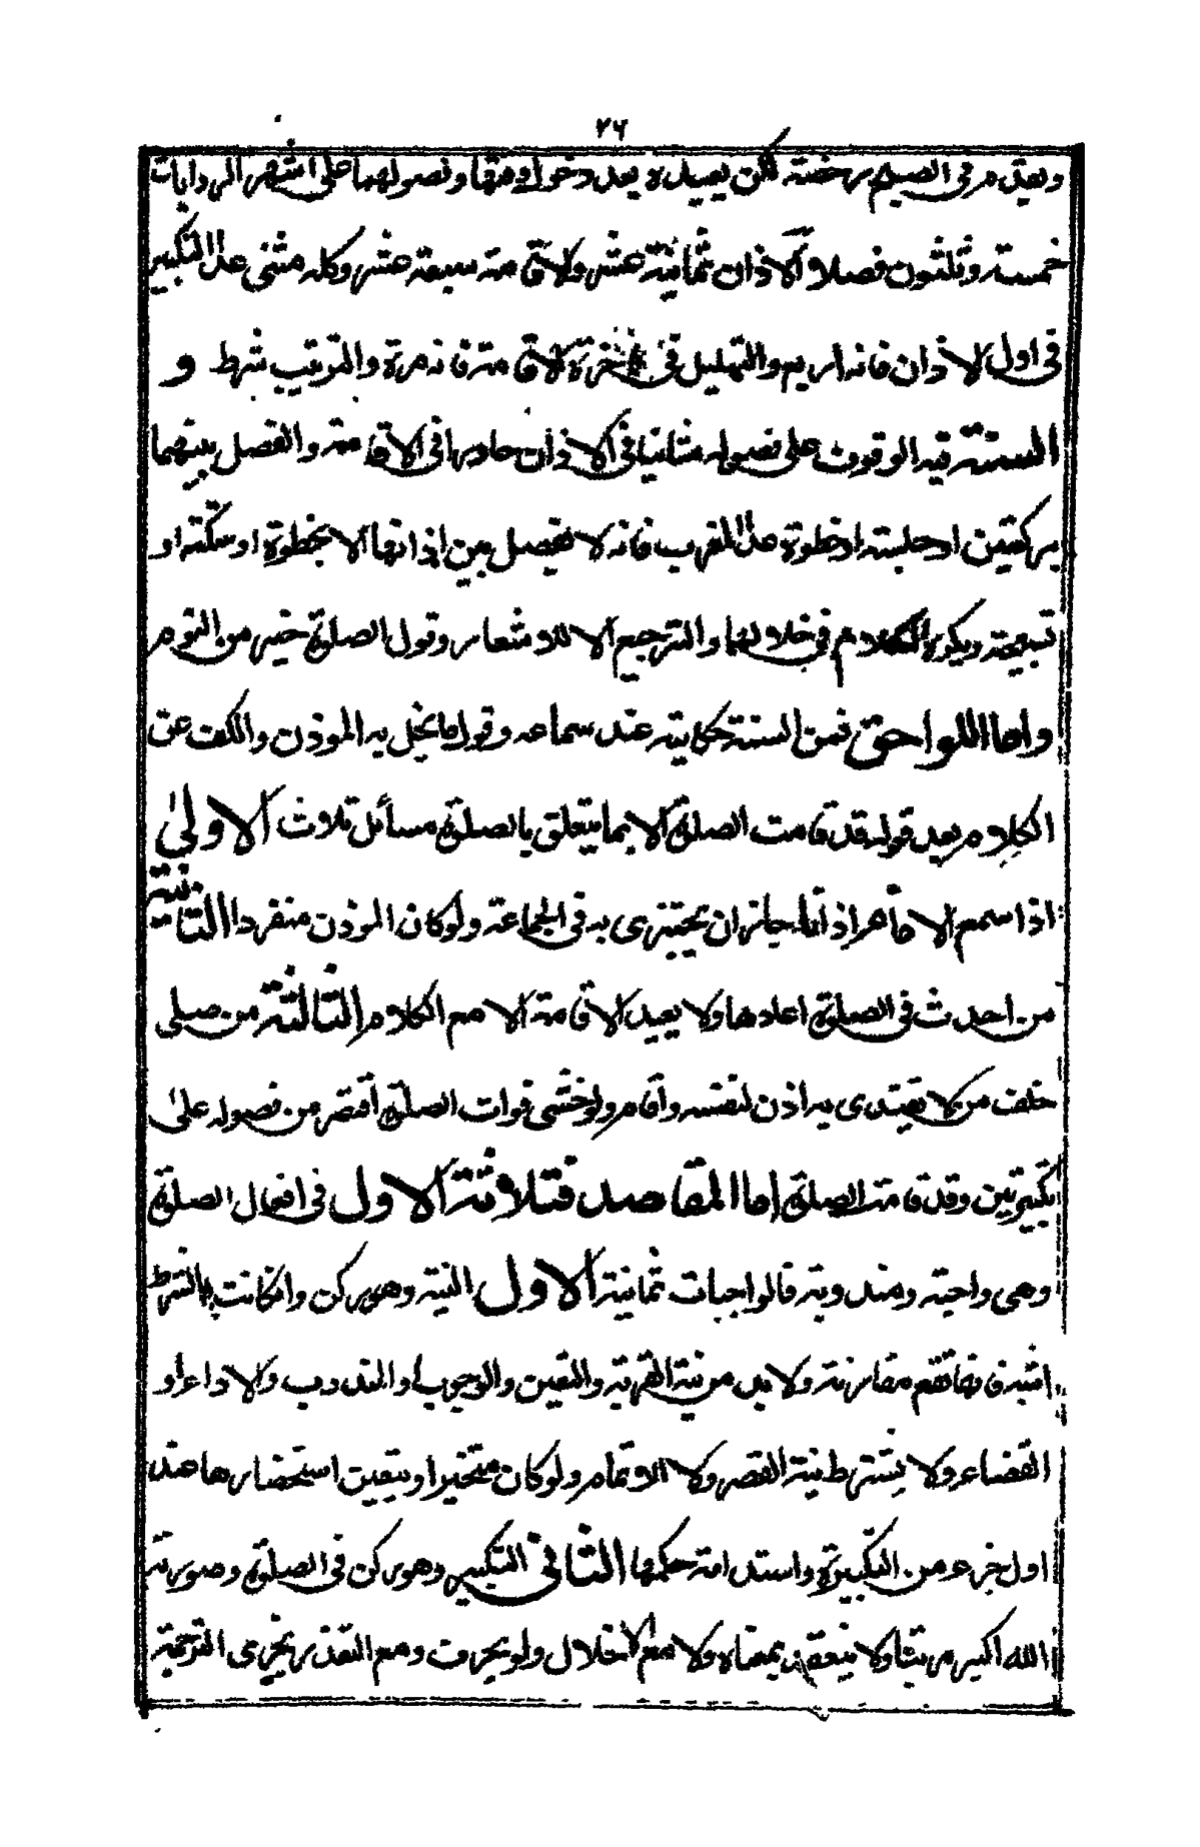 ٢٦
ويقدم في الصبح رخصة لكن يعيده بعد دخول وقتها وفصولهما على اشهر الروايات
خمسة وثلثون فصلا الاذان ثمانية عشر والاقامة سبعة عشر وكله مثنى عدا التكبير
في اول الاذان فانه اربع والتهليل في اخر الاقامة فانه مرة والترتيب شرط و
السنة فيه الوقوف على فصوله متانيا في الاذان حادرا في الاقامة والفصل بينهما
بركعتين او جلسة او خطوة عدا المغرب فانه لا يفصل بين اذانها الا بخطوة او سكتة او
تسبيحة ويكره الكلام في خلالهما والترجيع الا للاشعار وقول الصلوة خير من النوم
واما اللواحق فمن السنة حكايته عند سماعه وقول ما يخل به المؤذن والكف عن
الكلام بعد قوله قد قامت الصلوة الا بما يتعلق بالصلوة مسائل ثلاث الاولى
اذا سمع الامام اذانا جاز ان يجتزى به في الجماعة ولو كان المؤذن منفردا الثانية
من احدث في الصلوة اعادها ولا يعيد الاقامة الا مع الكلام الثالثة من صلى
خلف من لا يقتدى به اذن لنفسه واقام ولو خشى فوات الصلوة اقتصر من فصوله على
تكبيرتين وقد قامت الصلوة اما المقاصد فثلاثة الاول في افعال الصلوة
وهي واجبة ومندوبة فالواجبات ثمانية الاول النية وهو ركن وان كانت بالشرط
اشبه فانها تقع مقارنة ولا بد من نية القربة والتعين والوجوب او الندب والاداء او
القضاء ولا يشترط نية القصر ولا الاتمام ولو كان متخيرا ويتعين استحضارها عند
اول جزء من التكبيرة واستدامة حكمها الثاني التكبير وهو ركن في الصلوة وصورته
الله اكبر مرتبا ولا ينعقد بمعناه ولا مع الاخلال ولو بحرف ومع التعذر يجزى الترجمة